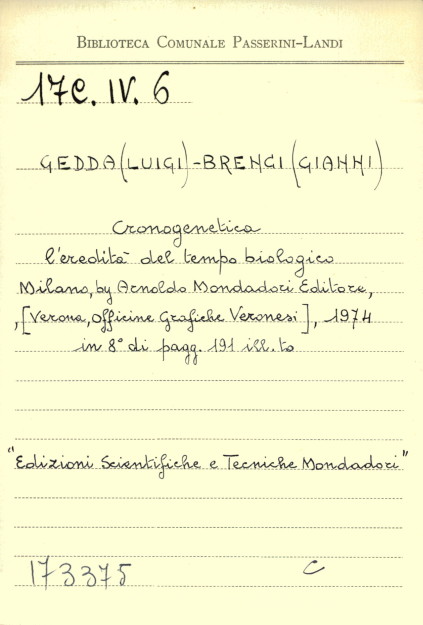 BIBLIOTECA COMUNALE PASSERINI-LANDI
17C. IV. 6
GEDDA (LUIGI) - BRENCI (GIANNI)
Cronogenetica
l'eredità del tempo biologico
Milano, by Arnoldo Mondadori Editore,
,[Verona, Officine Grafiche Veronesi], 1974
in 8° di pagg. 191 ill.to
"Edizioni Scientifiche e Tecniche Mondadori"
173375 C